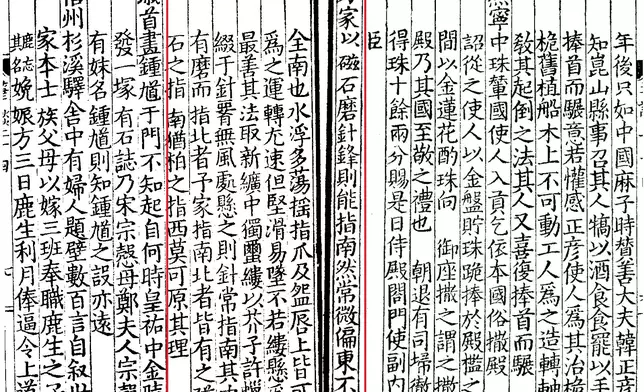 年後只如中國麻子時贊善大夫韓正
知崑山縣事召其人犒以酒食食罷以
捧首而驟意若懽感正彥使人為其治桅
桅舊植船木上不可動工人為之造轉
教其起倒之法其人又喜復捧首而驟
熙寧中珠輦國使人入貢乞依本國俗撒
詔從之使人以金盤貯珠跪捧於殿檻之
間以金蓮花酌珠向 御座撒之謂之撒
殿乃其國至敬之禮也 朝退有司埽徹
得珠十餘兩分賜是日侍殿閤門使副内
臣
方家以磁石磨針鋒則能指南然常微偏東不
全南也水浮多蕩搖指爪及盌脣上皆可
為之運轉尤速但堅滑易墜不若縷懸
最善其法取新纊中獨蠒縷以芥子許蠟
綴于針署無風處懸之則針常指南其中
有磨而指北者予家指南北者皆有之磁
石之指南猶柏之指西莫可原其理
歲首畫鍾馗于門不知起自何時皇祐中金陵
發一塚有石誌乃宋宗慤母鄭夫人宗慤
有妹名鍾馗則知鍾馗之設亦遠
信州杉溪驛舍中有婦人題壁數百言自叙世
家本士族父母以嫁三班奉職鹿生之子
鹿忘其名娩娠方三日鹿生利月俸逼令上道